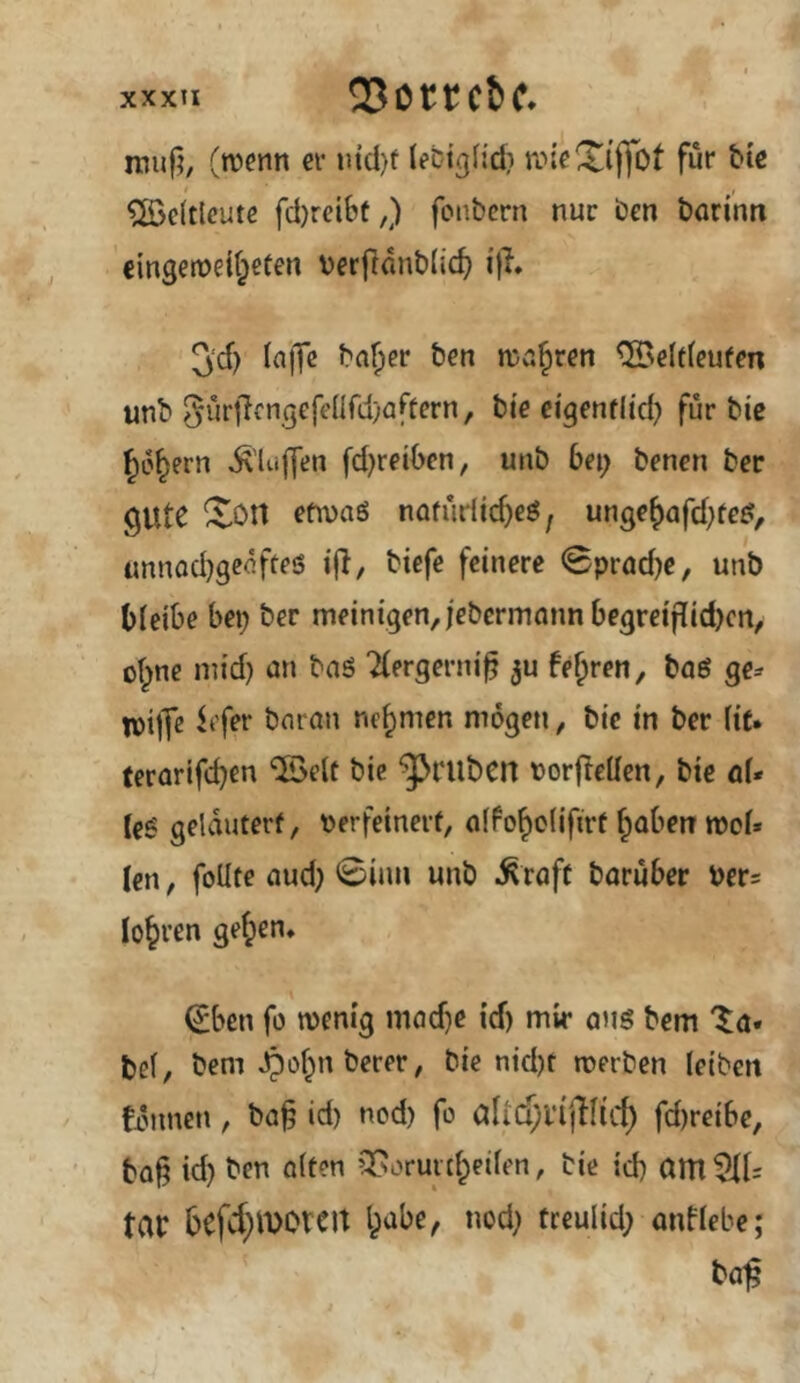 xxxii Vorrede.
muß, (wenn er nicht lediglich wie Tissot für die
Weltleute schreibt,) sondern nur den darinn
eingeweiheten verständlich ist.
Ich lasse daher den wahren Weltleuten
und Fürstengesellschaftern, die eigentlich für die
höhern Klassen schreiben, und bey denen der
gute Ton etwas natürliches, ungehaschtes,
unnachgeäfftes ist, diese feinere Sprache, und
bleibe bey der meinigen, jedermann begreiflichen,
ohne mich an das Aergerniß zu kehren, das ge-
wisse Leser daran nehmen mögen, die in der lit-
terarischen Welt die Pruden vorstellen, die al-
les geläutert, verfeinert, alkoholisirt haben wol-
len, sollte auch Sinn und Kraft darüber ver-
lohren gehen.
Eben so wenig mache ich mir aus dem Ta-
del, dem Hohn derer, die nicht werden leiden
können, daß ich noch so altchristlich schreibe,
daß ich den alten Vorurtheilen, die ich am Al-
tar beschworen habe, noch treulich anklebe;
daß